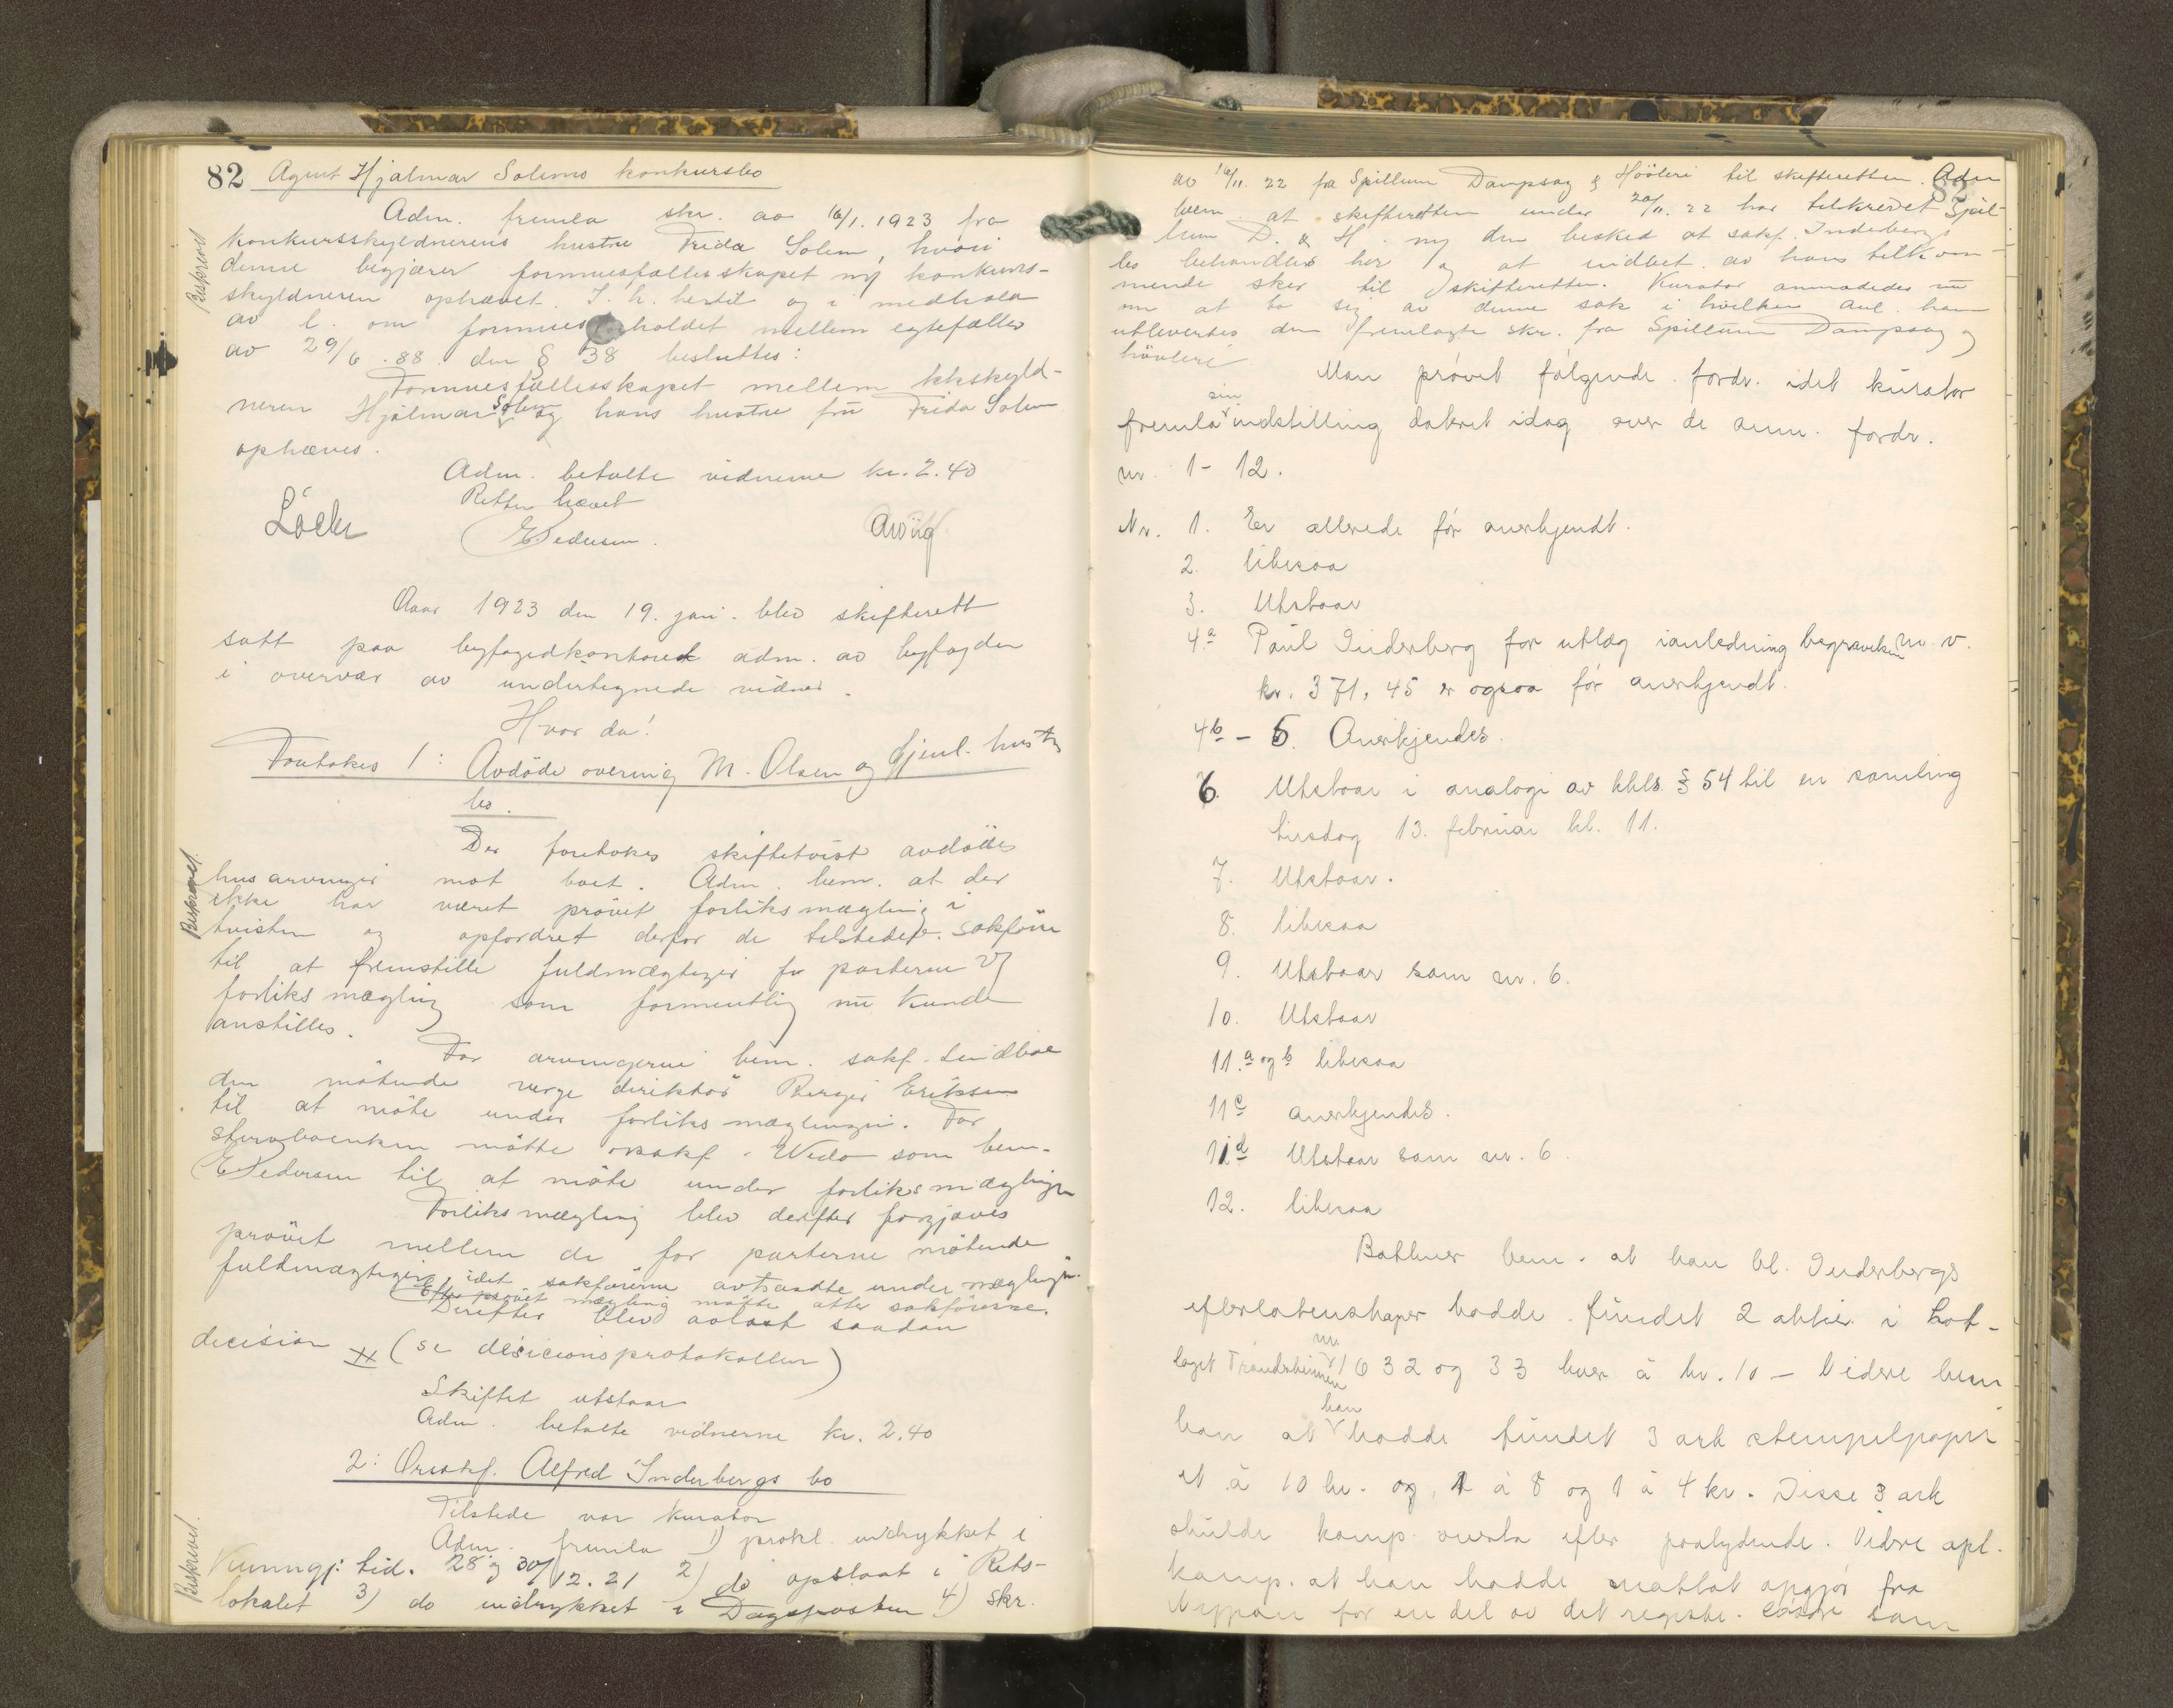 82 Agent Hjalmar Solems konkursbo
Adm. fremla skr. av 16/1. 1923 fra
konkursskyldnerens hustru Frida Solem, hvori
denne begjærer formuesfællesskapet m/ konkurs-
skyldneren ophævet. I h. hertil og i medhold
av l. om formuesforholdet mellem egtefæller
av 29/6. 88 den § 38 besluttes:
Formuesfællesskapet mellem kkskyld-
neren Hjalmar Solem og hans hustru fru Frida Solem
ophæves.
Adm. betalte vidnerne kr. 2.40
Retten hævet
EPedersen.
Beskrevet
Aar 1923 den 19. jan. blev skifterett
satt paa byfogedkontoret adm. av byfogden
i overvær av undertegnede vidner.
Hvor da!
Foretokes 1: Avdøde overing M. Olsen og gjenl. hustrus
bo.
Der foretokes skiftetvist avdødes
Beskrevet.
hus arvinger mot boet. Adm. bem. at der
ikke har været prøvet forliksmægling i
tvisten og opfordret derfor de tilstedev. sakføre
til at fremstille fuldmægtiger for parterne v/
forliksmægling som formentlig nu kunde
anstilles.
For arvingerne bem. sakf. Lindboe
den møtende verge direktør Birger Eriksen
til at møte under forliksmæglingen. For
stervboenken møtte orsakf. Wedo som bem.
EPedersen til at møte under forliksmæglingen
Forliksmægling blev derefter forgjæves
prøvet mellem de for parterne møtende
fuldmægtiger, idet sakførerne avtraadte under mæglingen.
Efter prøvet mægling møtte atter sakførerne.
Derefter blev avlast saadan
decision # (se desicionsprotokollen)
Skiftet utstaar
Adm. betalte vidnerne kr. 2.40
2: Orsakf. Alfred Inderbergs bo
Tilstede var kurator
Adm. fremla 1) prokl. indrykket i
Beskrevet.
Kunngj: tid. 28 og 30/12. 21 2) do opslaat i Rets-
lokalet 3) do indrykket i Dagsposten 4) skr.
av 16/11. 22 fra Spillum Dampsag & Høvleri til skifteretten. Adm
83
bem. at skifteretten under 20/11. 22 har tilskrevet Spil-
lum D. & H. m/ den besked at sakf. Inderbergs
bo behandles her og at indbet. av hans tilkom-
mende sker til skifteretten. Kurator anmodedes nu
om at ta sig av denne sak i hvilken anl. ham
utlevertes den fremlagte skr. fra Spillum Dampsag og
høvleri
Man prøvet følgende fordr. idet kurator
fremla sin indstilling datert idag over de anm. fordr.
nr 1- 12.
Nr. 1. Er allerede før anerkjendt.
2. likesaa
3. Utstaar
4a Paul Inderberg for utlæg i anledning begravelsen m. v.
kr. 371,45 er ogsaa før anerkjendt.
4b - 5. Anerkjendes.
6. Utstaar i analogi av kkls. § 54 til en samling
tirsdag 13. februar kl. 11.
7. Utstaar.
8. likesaa
9. Utstaar som nr. 6.
10. Utstaar
11.a og b likesaa
11c anerkjendes.
11d Utstaar som nr. 6.
12. likesaa
bem. at han bl. Inderbergs
efterlatenskaper hadde fundet 2 aktier i Lot-
laget Trondheimen nr. 1632 og 33 hver á kr. 10 - Videre bem
han at han hadde fundet 3 ark stempelpapir
et á 10 kr. og 1 á 8 og 1 á 4 kr. Disse 3 ark
skulde komp. overta efter paalydende. Videre opl.
komp. at han hadde mottat opgjør fra
for en del av det registr. som